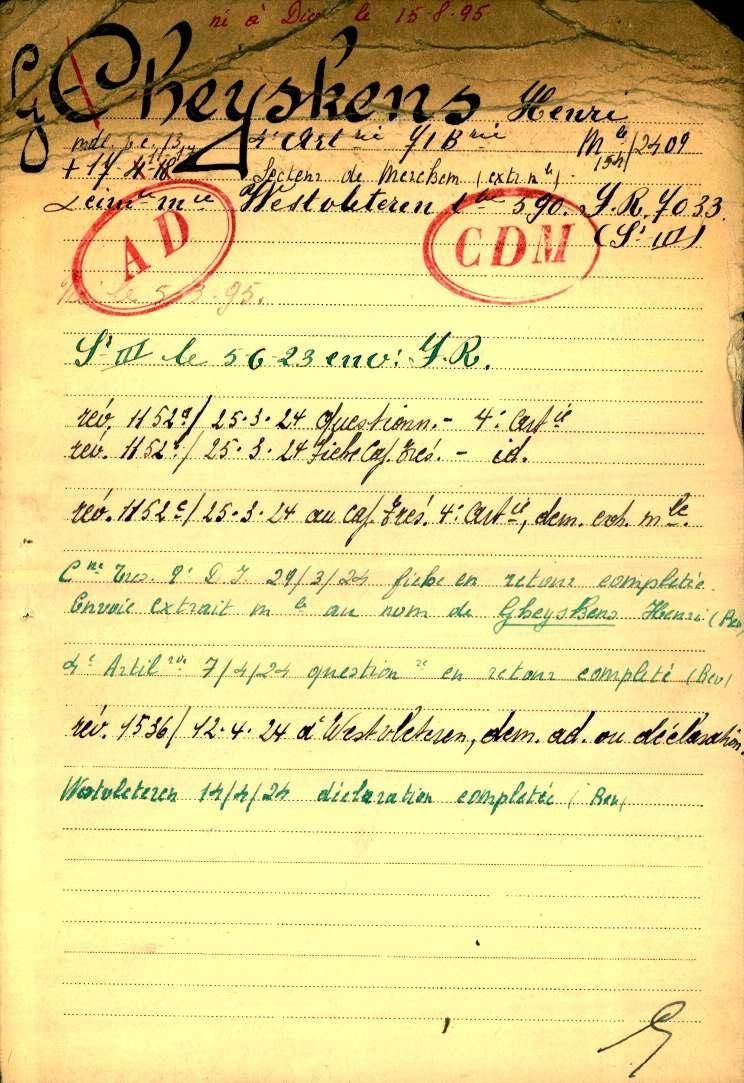 né à Die le 15-8-95
Gheyskens Henri
4e Artie 7/Brie Mle 154/2409
+ 17-4-18 Secteur de Merckem (extr. mle)
Westvleteren tbe 590. S.R. 7033.
(St III)
AD
CDM
Né le 5-3-95.
St III le 5-6-23 env: S.R.
rév. 1152a/ 25-3-24 questionn. - 4e Artie
rév. 1152b/ 25-3-24 fiche Caf. Trés. - id.
rév. 1152c/ 25-3-24 au Caf. Trés. 4e Artie, dem. ext. mle.
Cne Tres. 9e D I. 29/3/24 fiche en retour completée.
Envoie extrait mle au nom de Gheyskens Henri (Rev)
4e Artilrie 7/4/24 questionre en retour completé (Rev)
rév. 1536/ 12-4-24 à Westvleteren, dem. ad. ou déclaration.
Westvleteren 14/4/24 déclaration completée (Rev)